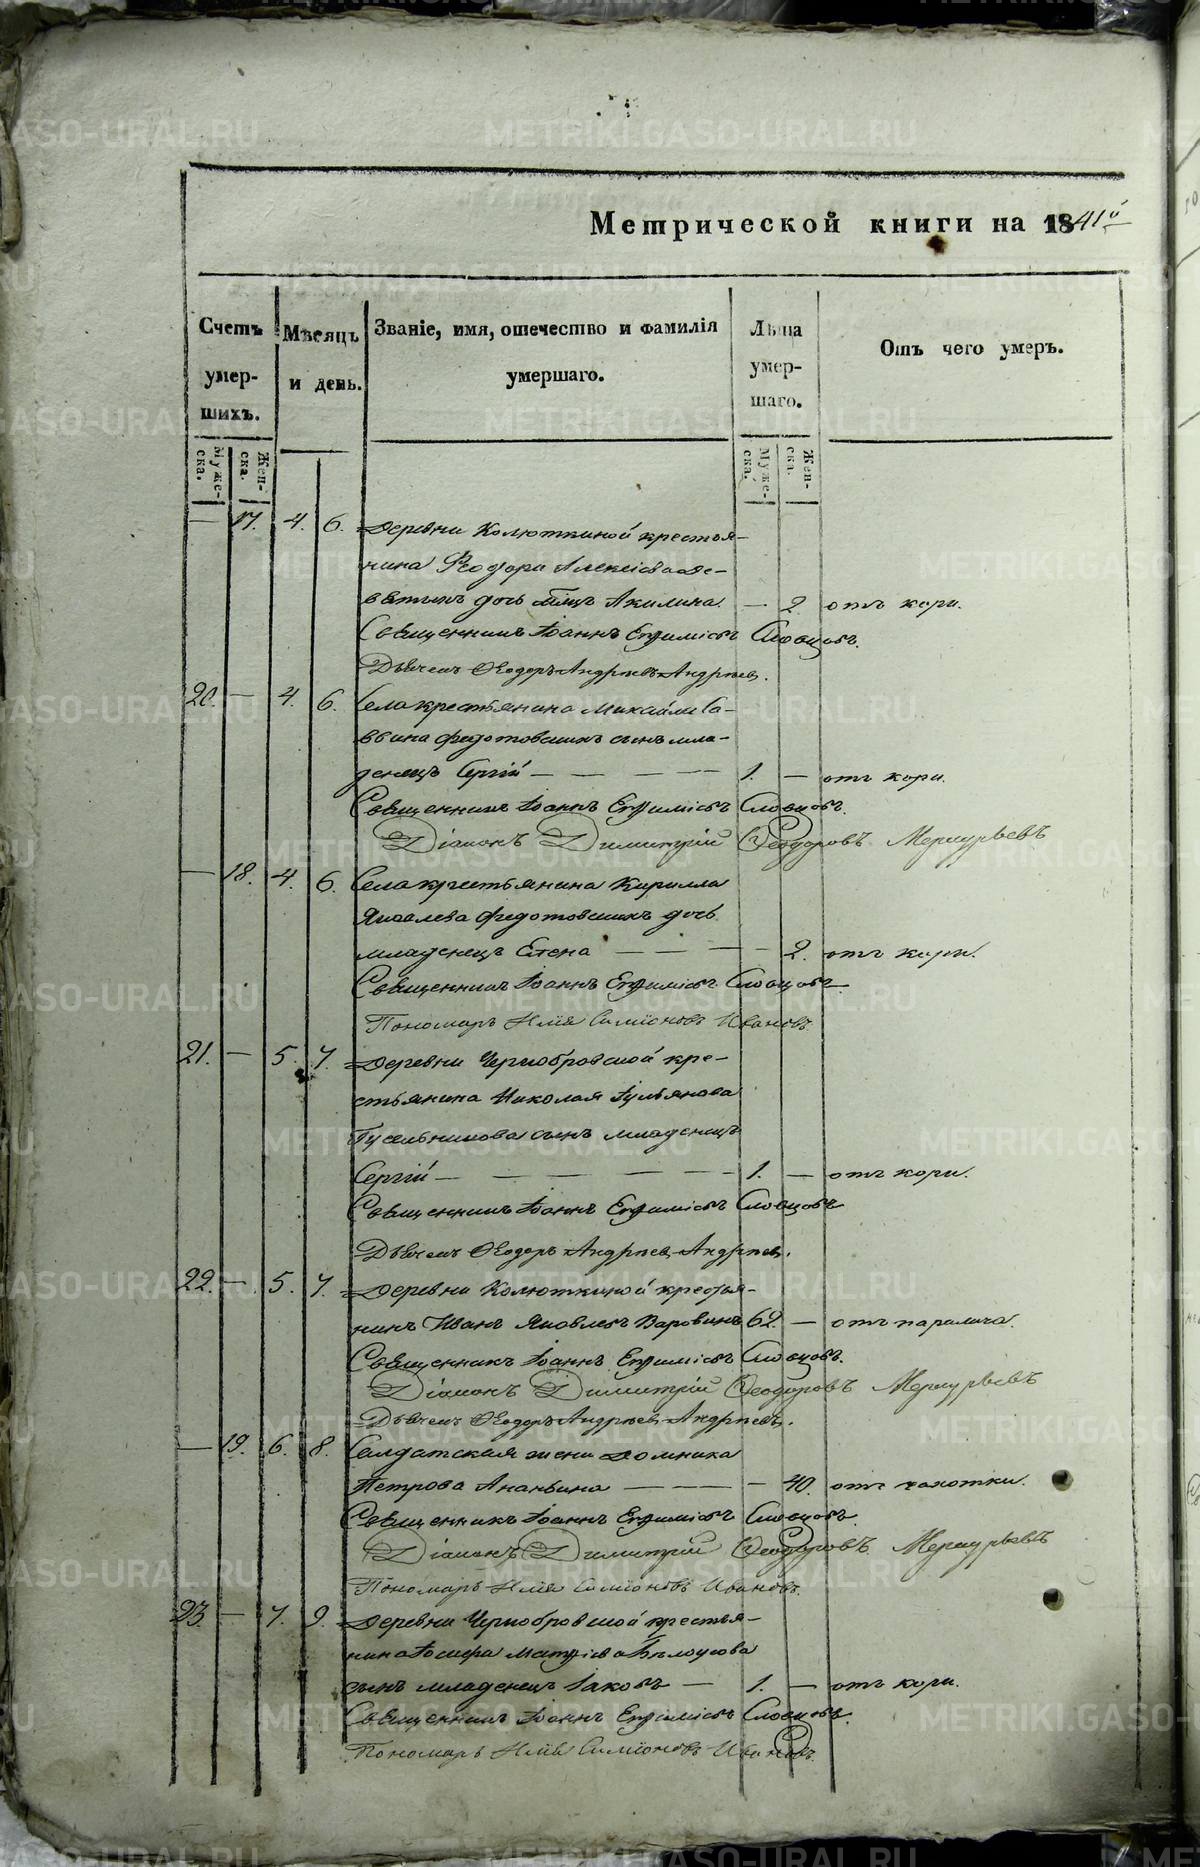 Метрической книги на 1841й
Счетъ умер-шихъ.
Муже-ска.
Жен-ска.
Мѣсяцъ и день.
Званіе, имя, отечество и фамилія
умершаго.
Лѣта умер-шаго.
Муже-ска.
Жен-ска.
Отъ чего умеръ.
— 17. 4. 6. Деревни Колюткиной крестья-
нина Ѳеодора Алексіева
дочь Акилина. — 2. отъ кори.
Священникъ Іоаннъ Евфиміевъ Словцовъ.
Дьячекъ Ѳеодоръ Андріевъ Андріевъ.
20. — 4. 6. Села крестьянина Михаила Са-
ввина Федотовскихъ сынъ мла-
денецъ Сергій — — — — 1. — отъ кори.
Священникъ Іоаннъ Евфиміевъ Словцовъ.
Діаконъ Димитрій Ѳеодоровъ Меркурьевъ
— 18. 4. 6. Села крестьянина Кирилла
Яковлева Федотовскихъ дочь
младенецъ Елена — — — — 2. отъ кори.
Священникъ Іоаннъ Евфиміевъ Словцовъ.
Пономарь Илія Симіоновъ Ивановъ.
21. — 5. 7. Деревни Чернобровской кре-
стьянина Николая Іульянова
Гусельникова сынъ младенецъ
Сергій — — — — 1. — отъ кори.
Священникъ Іоаннъ Евфиміевъ Словцовъ
Дьячекъ Ѳеодоръ Андріевъ Андріевъ.
22. — 5. 7. Деревни Колюткиной крестья-
нинъ Иванъ Яковлевъ Варовинъ 62. — отъ паралича.
Священникъ Іоаннъ Евфиміевъ Словцовъ.
Діаконъ Димитрій Ѳеодоровъ Меркурьевъ
Дьячекъ Ѳеодоръ Андріевъ Андріевъ.
— 19. 6. 8. Салдатская жена Домника
Петрова Ананьина — — — — 40. отъ чахотки.
Священникъ Іоаннъ Евфиміевъ Словцовъ.
Діаконъ Димитрій Ѳеодоровъ Меркурьевъ
Пономарь Илія Симіоновъ Ивановъ.
23. — 7. 9. Деревни Чернобровской крестья-
нина Іосифа Матфіева Бѣлоусова
сынъ младенецъ Іаковъ — 1. — отъ кори.
Священникъ Іоаннъ Евфиміевъ Словцовъ.
Пономарь Илія Симіоновъ Ивановъ.
METRIKI.GASO-URAL.RU